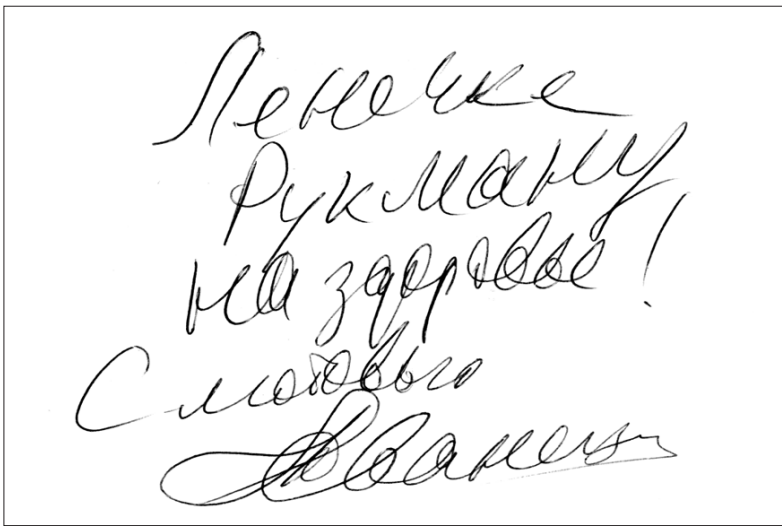 Ленечке
Рукману
на здоровье!
С любовью